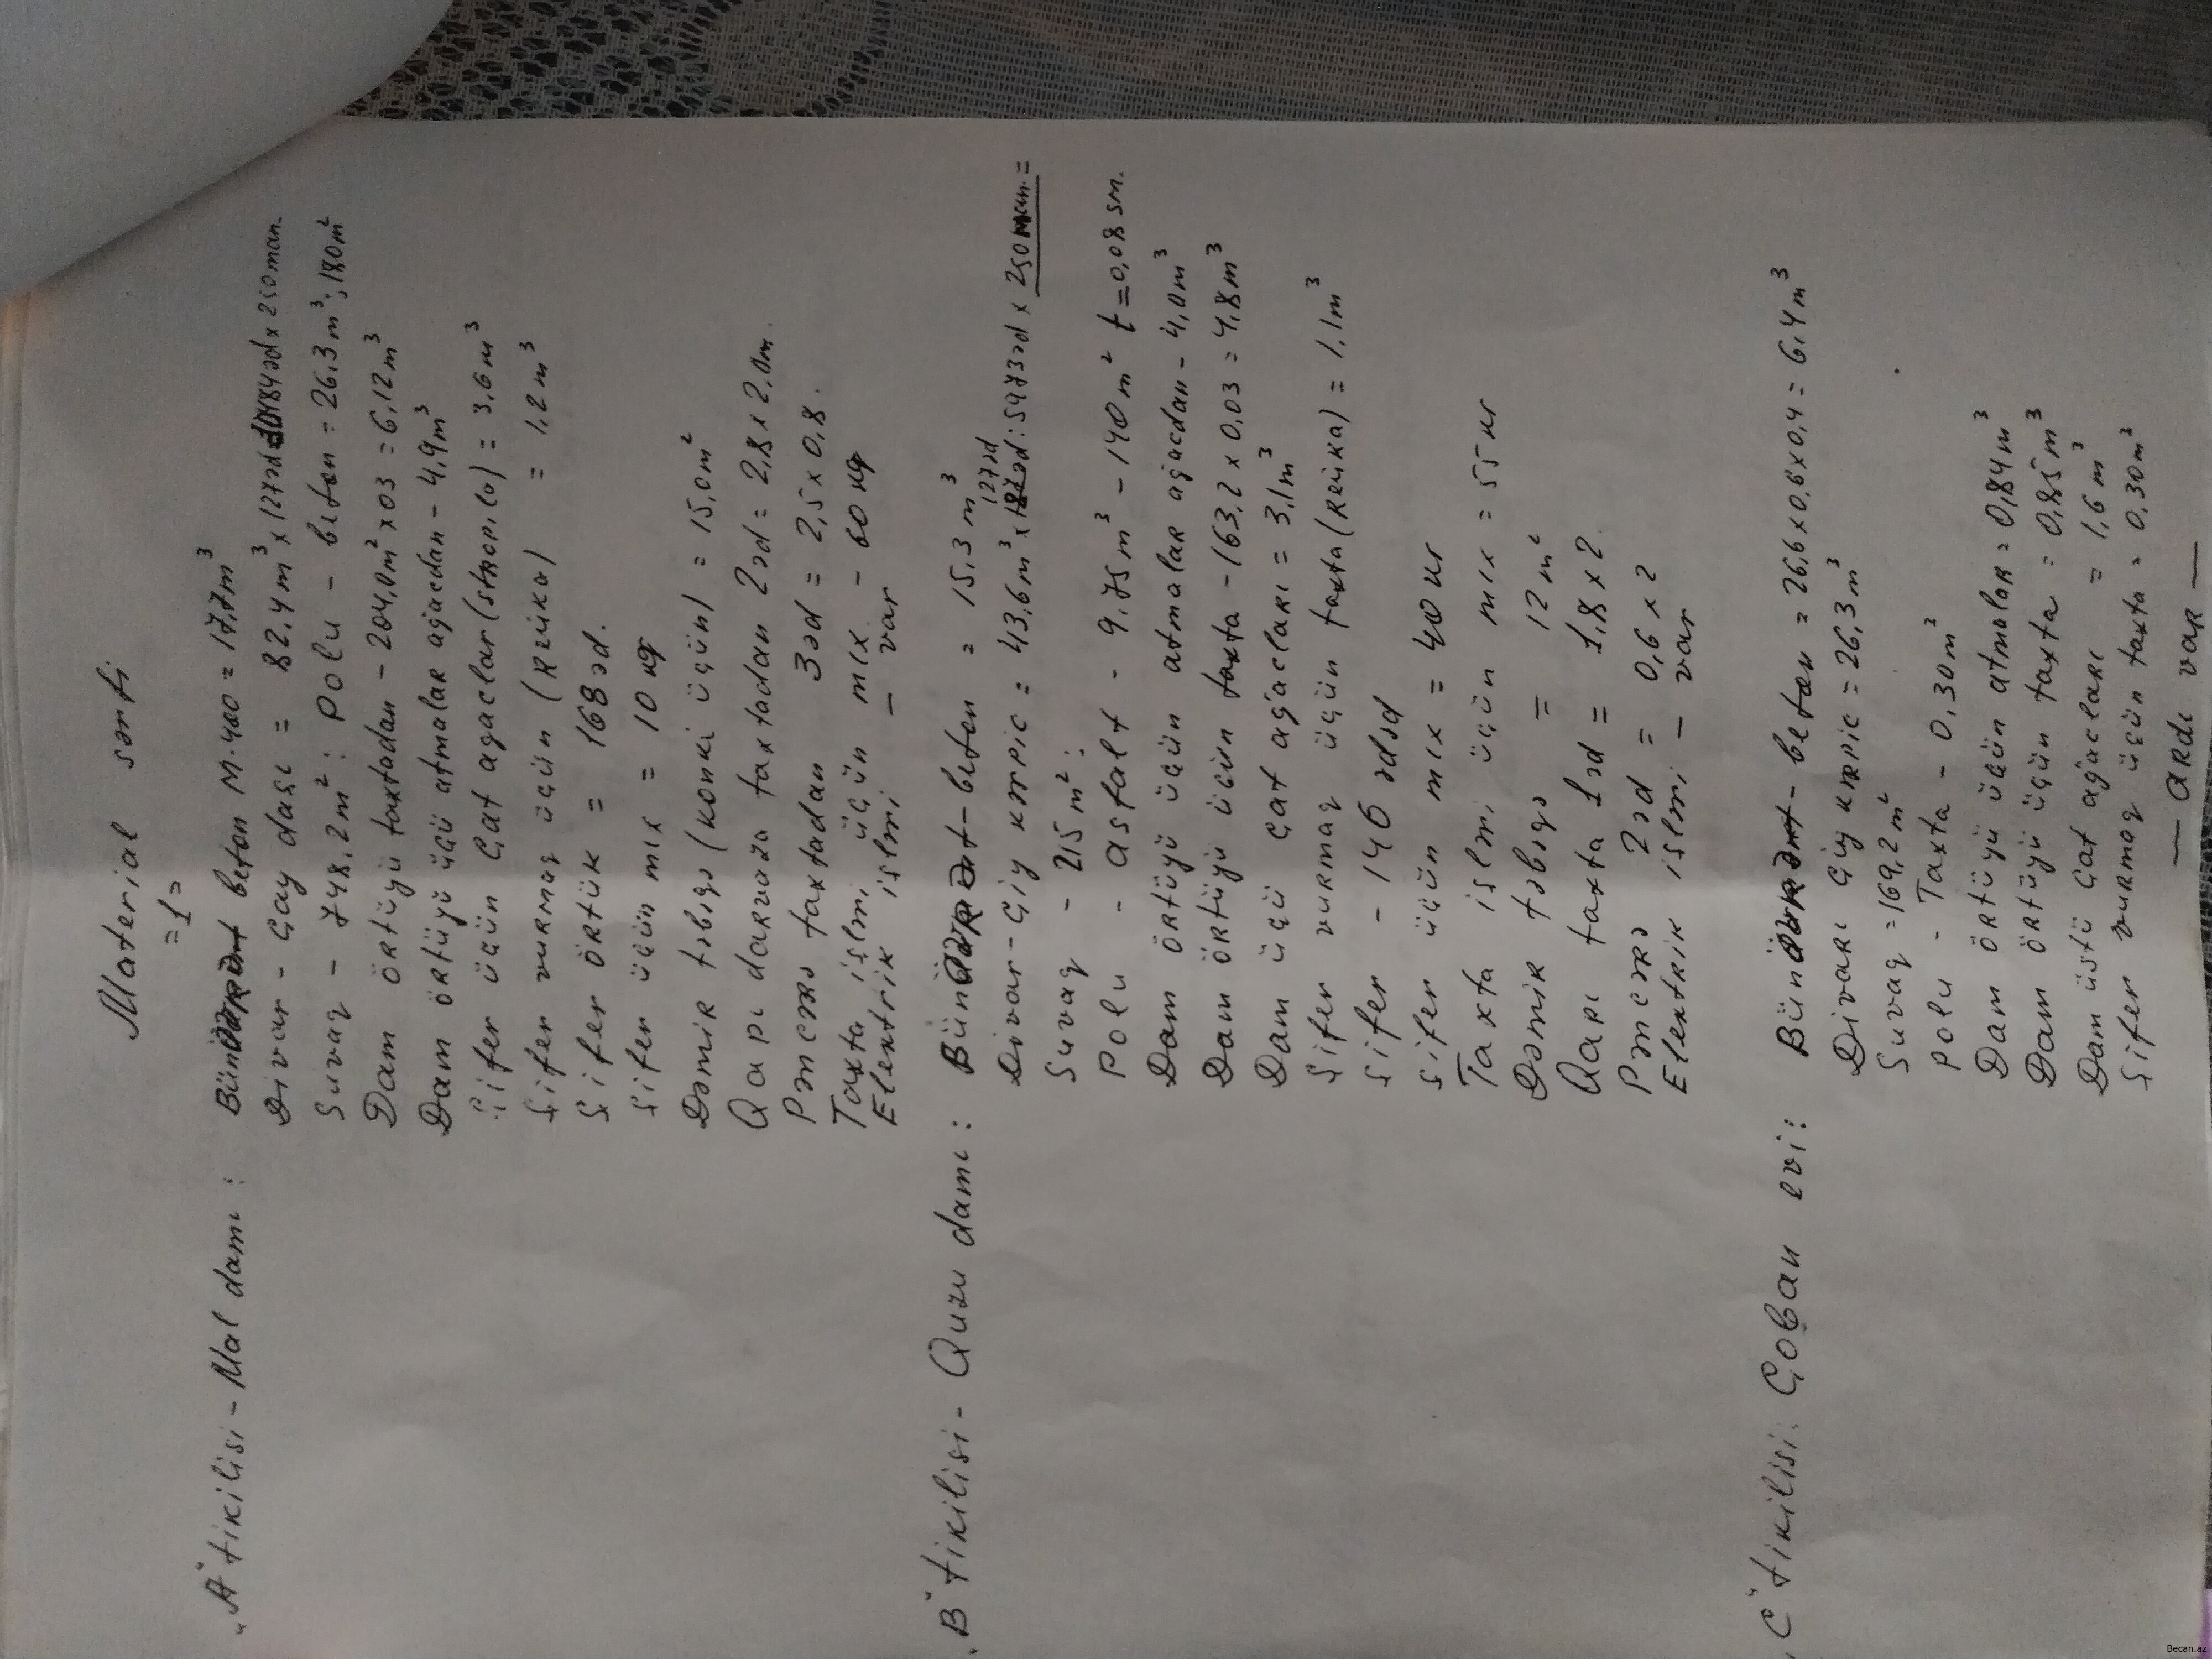 Material şərti
= 1 =
"A" tikilisi - Mal damı : beton M-400 = 17,7m³
Divar - Çay daşı = 82,4m³ x 127əd x 250man.
Suvaq - 748,2m² : Polu - beton = 26,3m³; 180m²
Dam örtüyü taxtadan - 204,0m² x 03 = 6,12m³
Dam örtüyü üçü atmalar ağacdan - 4,9m³
Şifer üçün Çat agaclar (stropıla) = 3,6m³
Şifer vurmaq üçün (Reuka) = 1,2m³
Şifer örtük = 168 əd.
Şifer üçün mıx = 10 kq
Dəmir təbəqə (konki üçün) = 15,0m²
Qapı darvaza taxtadan 2əd = 2,8 x 2,0m.
Pəncərə taxtadan 3əd = 2,5 x 0,8.
Taxta işləri üçün mıx - 60 kq
Elextrik işləri - var
"B" tikilisi - Quzu damı : beton = 15,3m³
127əd
Divar - Çiy kərpic = 43,6m³ x : 5973əd x 250
Suvaq - 215m² :
Polu - asfalt - 9,75m³ - 140m² t = 0,08 sm.
Dam örtüyü üçün atmalar ağacdan - 4,0m³
Dam örtüyü üçün taxta - 163,2 x 0,03 = 4,8m³
Dam üçü çat ağacları = 3,1m³
Şifer vurmaq üçün taxta (Reuka) = 1,1m³
Şifer - 146 ədəd
Şifer üçün mıx = 40 kr
Taxta işləri üçün mıx = 55 kr
Dəmir təbəqə = 12m²
Qapı taxta 1əd = 1,8 x 2.
Pəncərə 2əd = 0,6 x 2
Elextrik işləri - var
"C" tikilisi: Çoban evi : beton = 26,6 x 0,6 x 0,4 = 6,4m³
Divarı Çiy kərpic = 26,3m³
Suvaq = 169,2m²
Polu - Taxta - 0,30m³
Dam örtüyü üçün atmalar = 0,84m³
Dam örtüyü üçün taxta = 0,85m³
Dam üstü Çat ağacları = 1,6m³
Şifer vurmaq üçün taxta = 0,30m³
— ardı var —
Becan.az